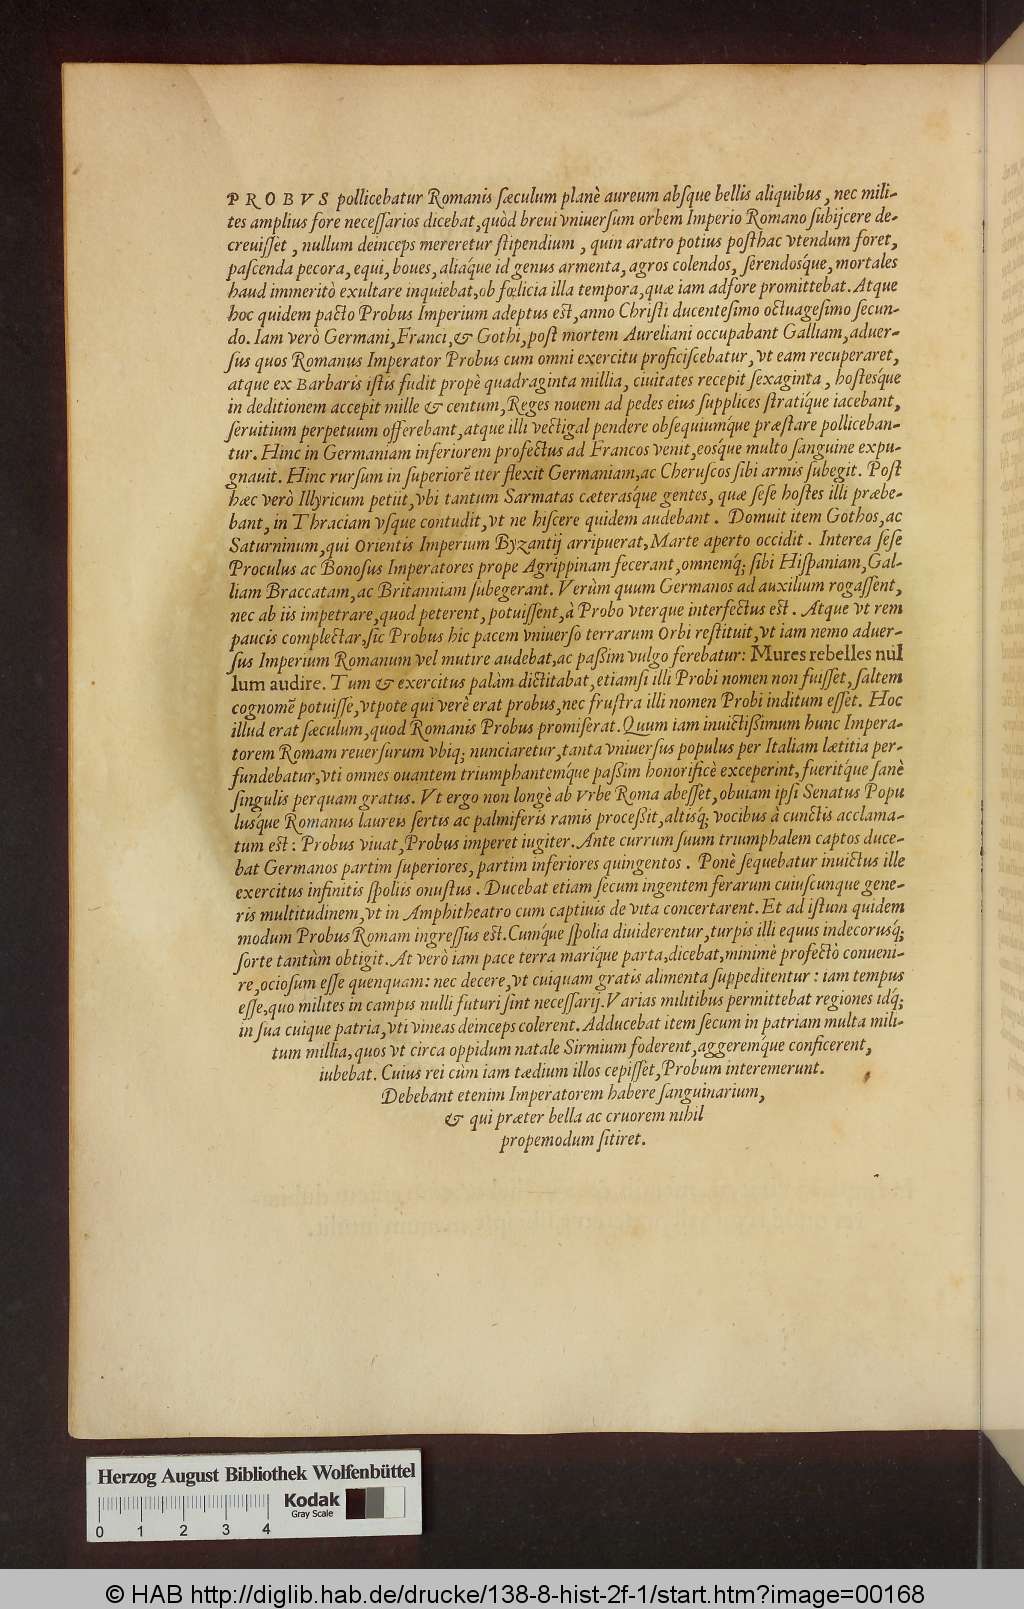 PROBVS pollicebatur Romanis sæculum planè aureum absque bellis aliquibus, nec mili-
tes amplius fore necessarios dicebat, quòd breui vniuersum orbem Imperio Romano subijcere de-
creuisset, nullum deinceps mereretur stipendium, quin aratro potius posthac vtendum foret,
pascenda pecora, equi, boues, aliaq́ue id genus armenta, agros colendos, serendosq́ue, mortales
haud immeritò exultare inquiebat, ob fœlicia illa tempora, quæ iam adfore promittebat. Atque
hoc quidem pacto Probus Imperium adeptus est, anno Christi ducentesimo octuagesimo secun-
do. Iam verò Germani, Franci, & Gothi, post mortem Aureliani occupabant Galliam, aduer-
sus quos Romanus Imperator Probus cum omni exercitu proficiscebatur, vt eam recuperaret,
atque ex Barbaris istis fudit propè quadraginta millia, ciuitates recepit sexaginta, hostesq́ue
in deditionem accepit mille & centum, Reges nouem ad pedes eius supplices stratiq́ue iacebant,
seruitium perpetuum offerebant, atque illi vectigal pendere obsequiumq́ue præstare polliceban-
tur. Hinc in Germaniam inferiorem profectus ad Francos venit, eosq́ue multo sanguine expu-
gnauit. Hinc rursum in superiorẽ iter flexit Germaniam, ac Cheruscos sibi armis subegit. Post
hæc verò Illyricum petiit, vbi tantum Sarmatas cæterasq́ue gentes, quæ sese hostes illi præbe-
bant, in Thraciam vsque contudit, vt ne hiscere quidem audebant. Domuit item Gothos, ac
Saturninum, qui Orientis Imperium Byzantij arripuerat, Marte aperto occidit. Interea sese
Proculus ac Bonosus Imperatores prope Agrippinam fecerant, omnemq́; sibi Hispaniam, Gal-
liam Braccatam, ac Britanniam subegerant. Verùm quum Germanos ad auxilium rogassent,
nec ab iis impetrare, quod peterent, potuissent, à Probo vterque interfectus est. Atque vt rem
paucis complectar, sic Probus hic pacem vniuerso terrarum Orbi restituit, vt iam nemo aduer-
sus Imperium Romanum vel mutire audebat, ac paßim vulgo ferebatur: Mures rebelles nul
lum audire. Tum & exercitus palàm dictitabat, etiamsi illi Probi nomen non fuisset, saltem
cognomẽ potuisse, vtpote qui verè erat probus, nec frustra illi nomen Probi inditum esset. Hoc
illud erat sæculum, quod Romanis Probus promiserat. Quum iam inuictißimum hunc Impera-
torem Romam reuersurum vbiq; nunciaretur, tanta vniuersus populus per Italiam lætitia per-
fundebatur, vti omnes ouantem triumphantemq́ue paßim honorificè exceperint, fueritq́ue sanè
singulis perquam gratus. Vt ergo non longè ab Vrbe Roma abesset, obuiam ipsi Senatus Popu
lusq́ue Romanus laureis sertis ac palmiferis ramis proceßit, altisq́; vocibus à cunctis acclama-
tum est: Probus viuat, Probus imperet iugiter. Ante currum suum triumphalem captos duce-
bat Germanos partim superiores, partim inferiores quingentos. Ponè sequebatur inuictus ille
exercitus infinitis spoliis onustus. Ducebat etiam secum ingentem ferarum cuiuscunque gene-
ris multitudinem, vt in Amphitheatro cum captiuis de vita concertarent. Et ad istum quidem
modum Probus Romam ingressus est. Cumq́ue spolia diuiderentur, turpis illi equus indecorusq́;
sorte tantùm obtigit. At verò iam pace terra mariq́ue parta, dicebat, minimè profectò conueni-
re, ociosum esse quenquam: nec decere, vt cuiquam gratis alimenta suppeditentur: iam tempus
esse, quo milites in campis nulli futuri sint necessarij. Varias militibus permittebat regiones idq́;
in sua cuique patria, vti vineas deinceps colerent. Adducebat item secum in patriam multa mili-
tum millia, quos vt circa oppidum natale Sirmium foderent, aggeremq́ue conficerent,
iubebat. Cuius rei cùm iam tædium illos cepisset, Probum interemerunt.
Debebant etenim Imperatorem habere sanguinarium,
& qui præter bella ac cruorem nihil
propemodum sitiret.
Herzog August Bibliothek Wolfenbüttel
Kodak
Gray Scale
0 1 2 3 4
© HAB http://diglib.hab.de/drucke/138-8-hist-2f-1/start.htm?image=00168